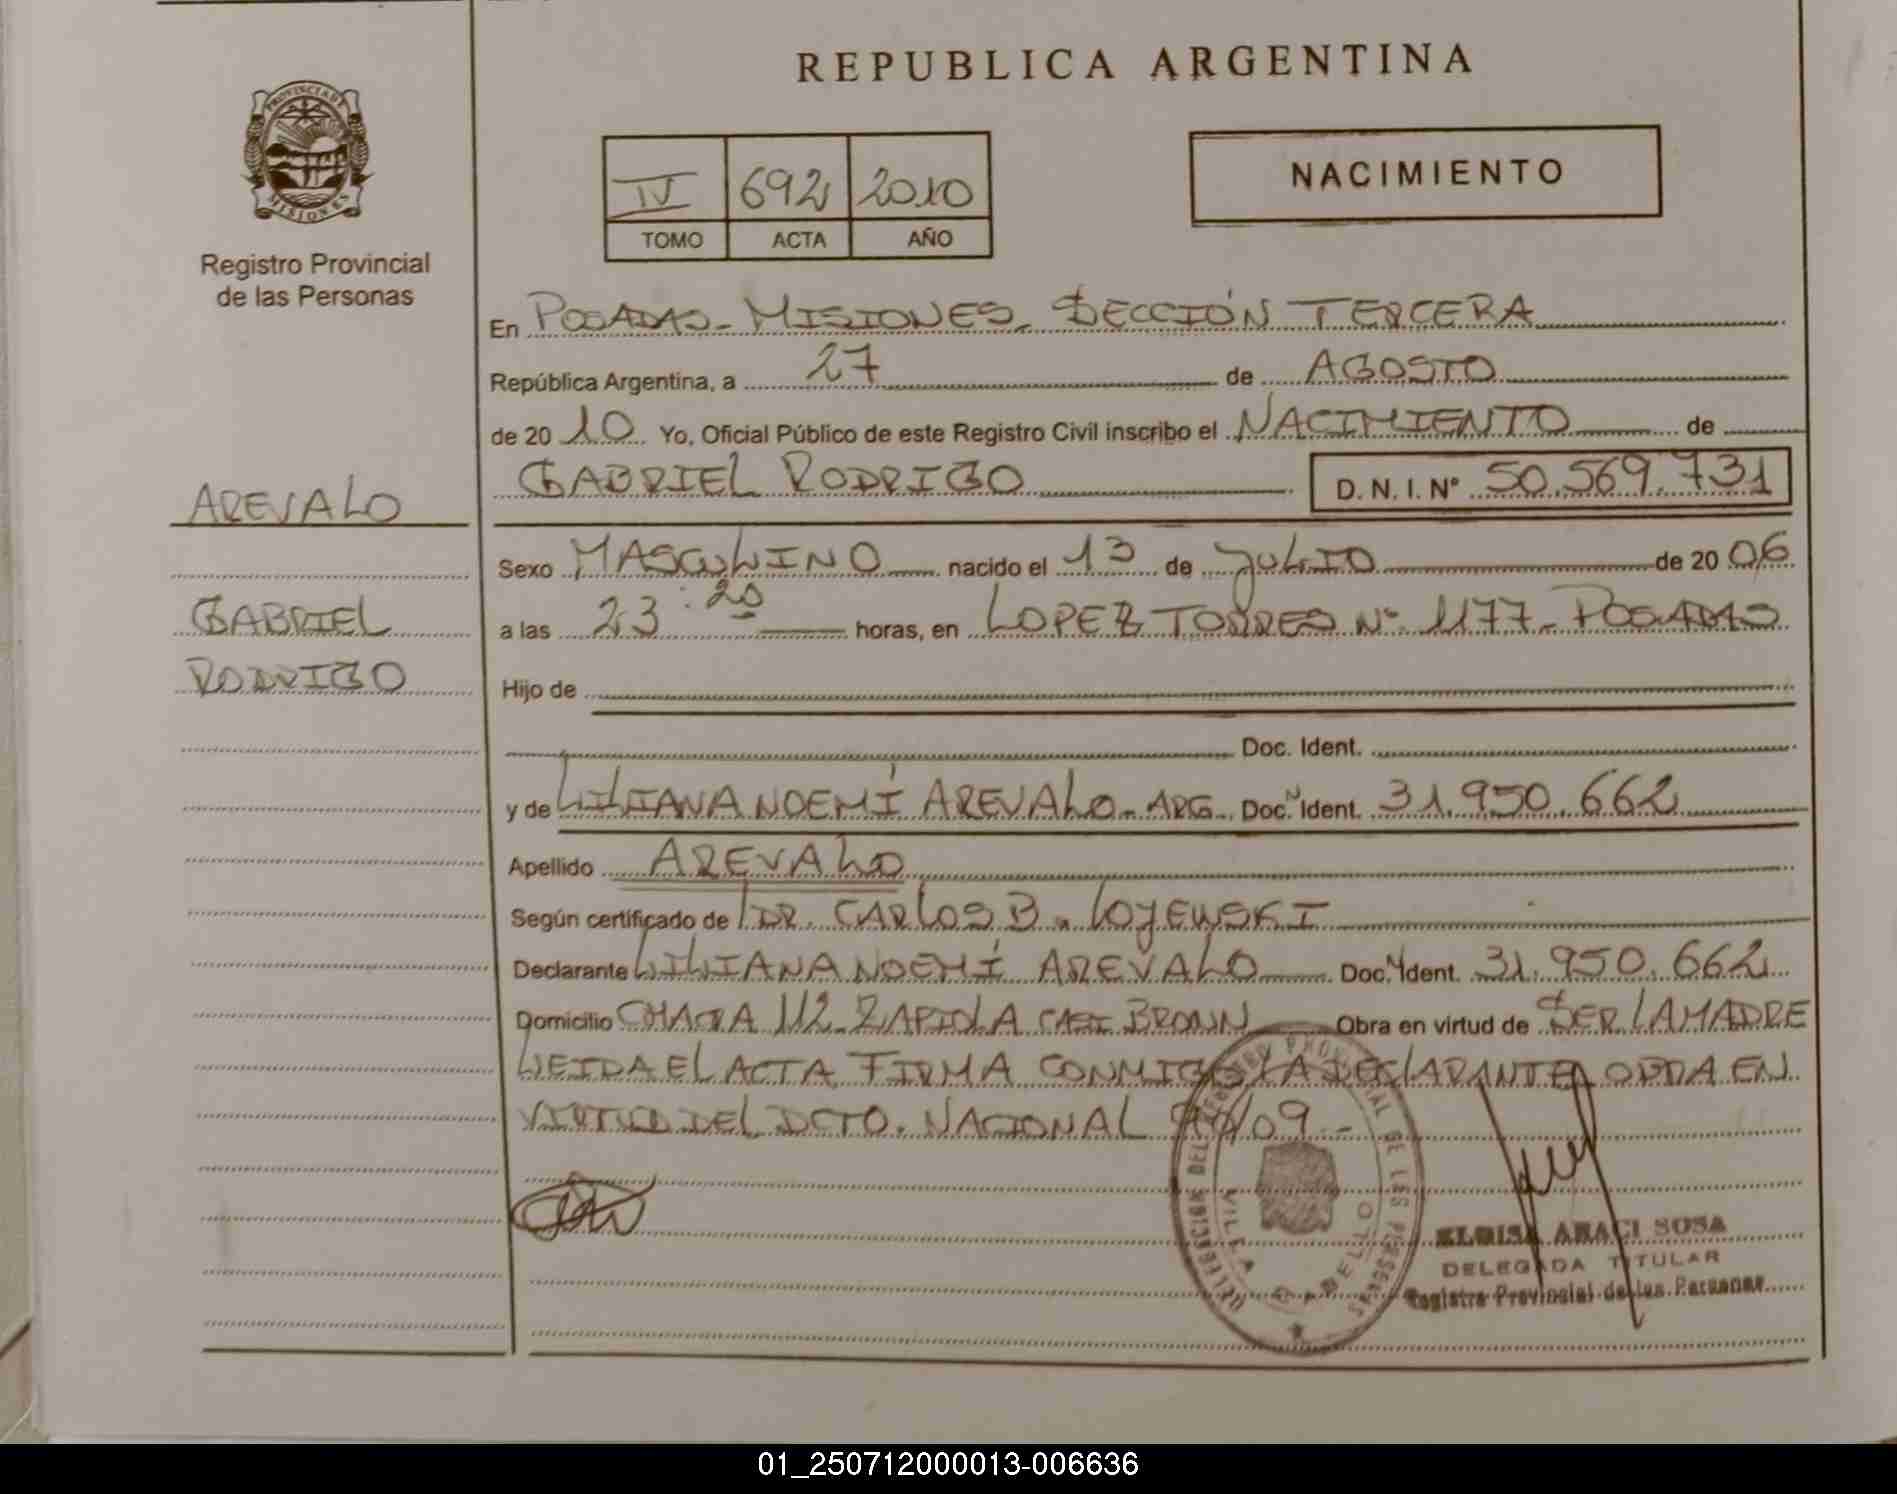 REPUBLICA ARGENTINA
PROVINCIA DE
MISIONES
Registro Provincial
de las Personas
IV 692 2010
TOMO ACTA AÑO
NACIMIENTO
En POSADAS - MISIONES - SECCIÓN TERCERA
República Argentina, a 27 de AGOSTO
de 2010 Yo, Oficial Público de este Registro Civil inscribo el NACIMIENTO de
GABRIEL RODRIGO D. N. I. N° 50.569.731
AREVALO
GABRIEL
RODRIGO
Sexo MASCULINO nacido el 13 de JULIO de 2006
a las 23:20 horas, en LOPEZ TORRES N° 1177 - POSADAS
Hijo de
Doc. Ident.
y de LILIANA NOEMÍ AREVALO - ARG. Doc. Ident. 31.950.662
Apellido AREVALO
Según certificado de DR. CARLOS B. LOYEWSKI
Declarante LILIANA NOEMÍ AREVALO Doc. Ident. 31.950.662
Domicilio CHACRA 112 - ZAPIOLA CASI BROWN Obra en virtud de SER LA MADRE
LEIDA EL ACTA FIRMA CONMIGO LA DECLARANTE OBRA EN
VIRTUD DEL DCTO. NACIONAL /09 -
DELEGACION DEL REGISTRO PROVINCIAL DE LAS PERSONAS
VILLA CABELLO
ELOISA ARACI SOSA
DELEGADA TITULAR
Registro Provincial de las Personas
01_250712000013-006636